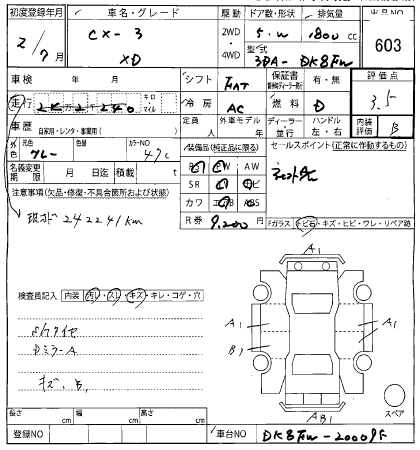 初度登録年月
車名・グレード
駆動 ドア数・形状 排気量
2/7月
CX-3
XD
2WD
4WD
5・W
1800 cc
型式
3DA-DK8FW
603
車検 年 月
シフト FAT
保証書 有・無
評価点
3.5
走行
キロ
マイル
冷房 AC
燃料 D
車歴 自家用・レンタ・事業用( )
定員 人
外車モデル年
ディーラー 並行
ハンドル 左・右
内装評価 B
外色 元色 グレー
色替
カラーNO 47C
装備品(純正品に限る)
セールスポイント(正常に作動するもの)
名義変更期限 月 日迄 積載 t
PS PW AW
SR ナビ
カワ エアB ABS
注意事項(欠品・修復・不具合箇所および状態)
現メーター 242241km
R券 9,200
Fガラス トビ石・キズ・ヒビ・ワレ・リペア跡
検査員記入 内装 汚れ・スレ・キズ・キレ・コゲ・穴
Sなタイヤ
Dミラー A
キズ、B1
A1
A1
B1
A1
AB1
スペア
長さ cm 幅 cm 高さ cm
登録NO
車台NO DK8FW-200095